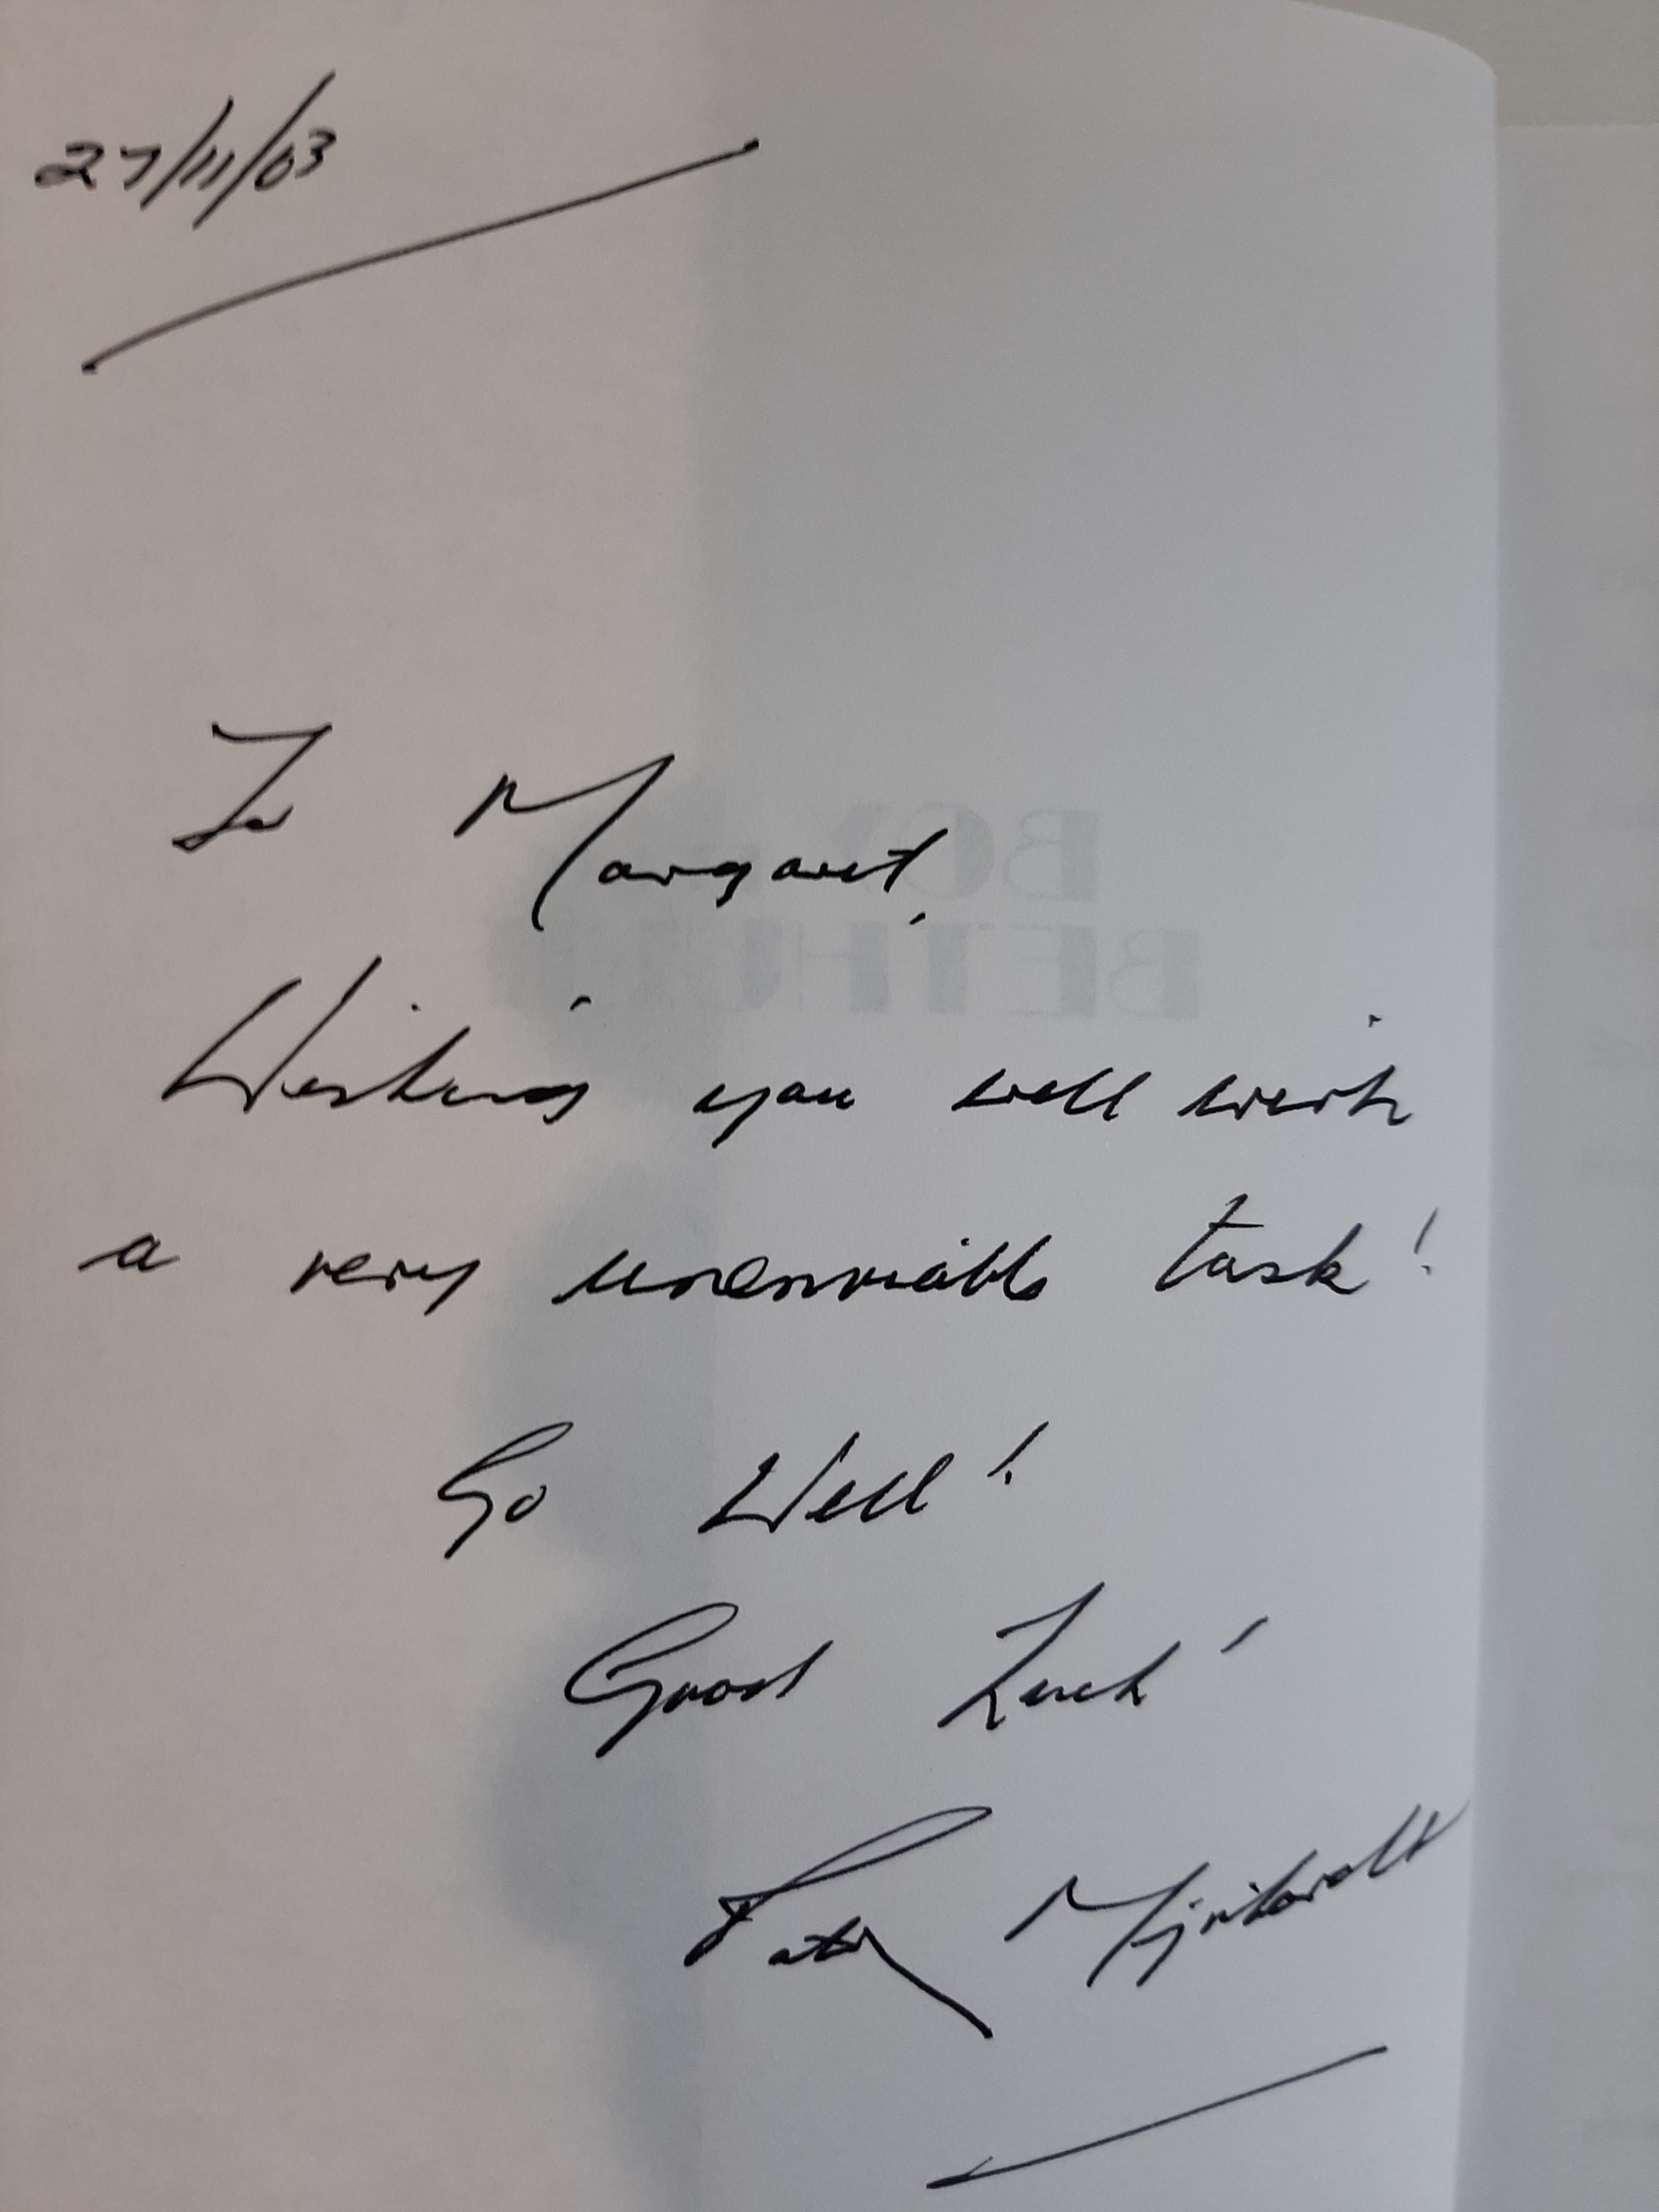 27/11/03
To Margaret,
Wishing you well with
a very unenviable task!
Go Well!
Good Luck!
Pater
BOY
BETHU